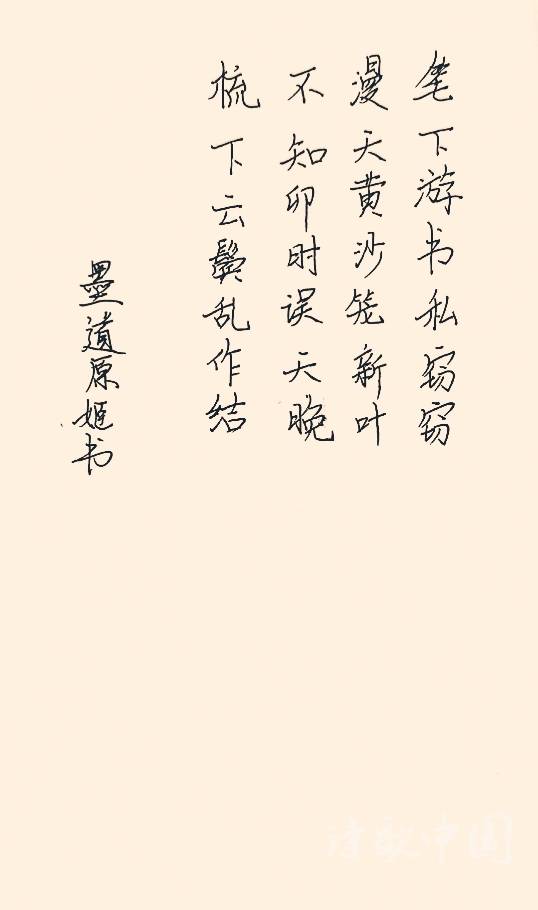 笔下游书私窃窃
漫天黄沙笼新叶
不知卯时误天晚
梳下云鬓乱作结
墨道原姬书
诗歌中国